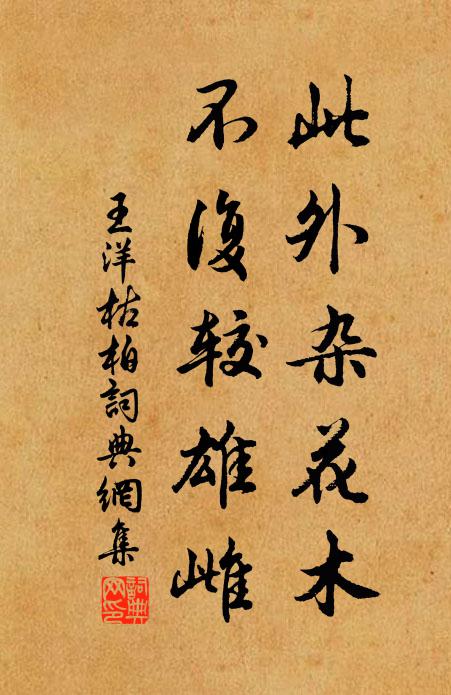 此外杂花木
不復较雄雌
王洋枯柏詞典網集
詞典網印